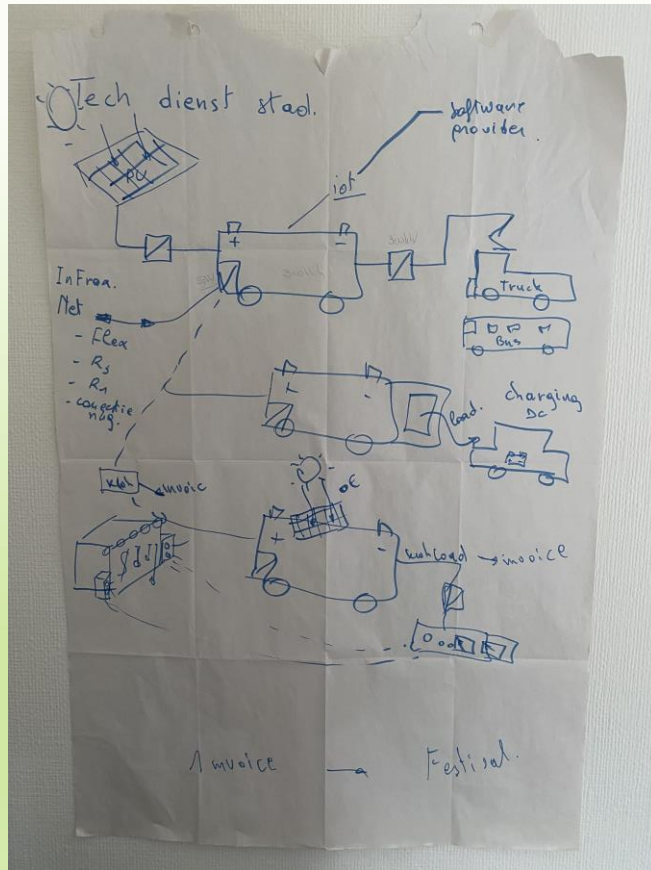 Tech dienst stad.
software
provider.
iot
+ -
Truck
Bus
InFra.
Net
- Flex
- R3
- R1
- congestie
mng.
+ -
load.
charging
DC
kWh
invoice
0€
+ -
kwh load → invoice
1 invoice → Festival.